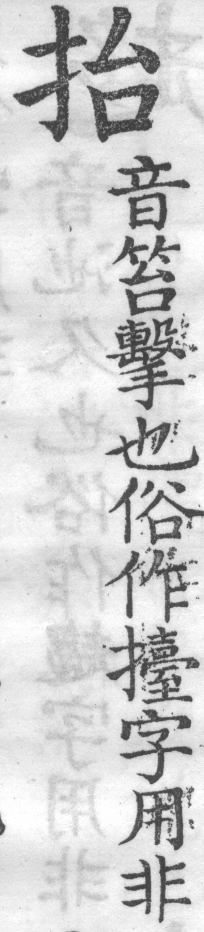 抬
音笞擊也俗作擡字用非